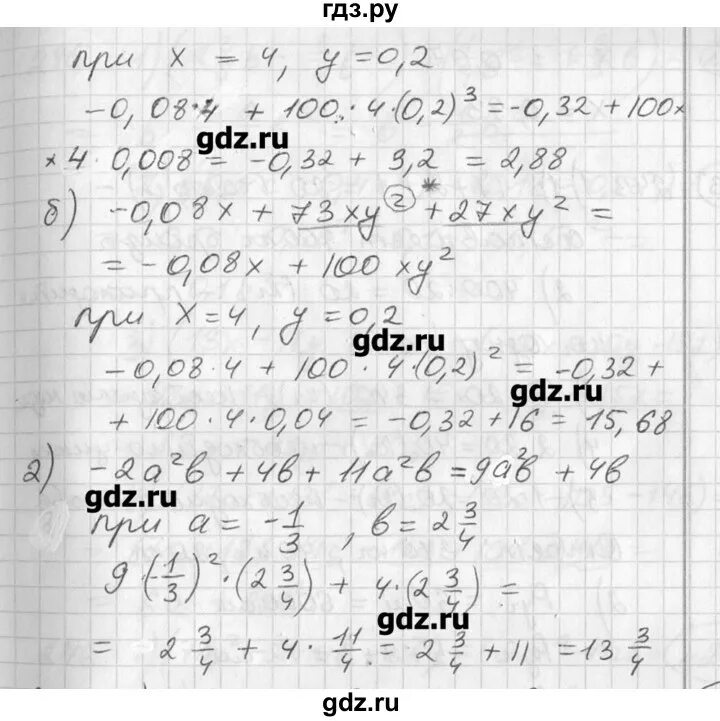 гдз.ру
при x = 4, y = 0,2
-0,08·4 + 100·4·(0,2)³ = -0,32 + 100×
×4·0,008 = -0,32 + 3,2 = 2,88
gdz.ru
б) -0,08x + 73xy² * + 27xy² =
= -0,08x + 100xy²
при x=4, y=0,2
gdz.ru
-0,08·4 + 100·4·(0,2)² = -0,32 +
gdz.ru
+ 100·4·0,04 = -0,32 + 16 = 15,68
2) -2a²b + 4b + 11a²b = 9a²b + 4b
gdz.ru
при a = -1/3, b = 2 3/4
9·(-1/3)²·(2 3/4) + 4·(2 3/4) =
gdz.ru
= 2 3/4 + 4·11/4 = 2 3/4 + 11 = 13 3/4
gdz.ru